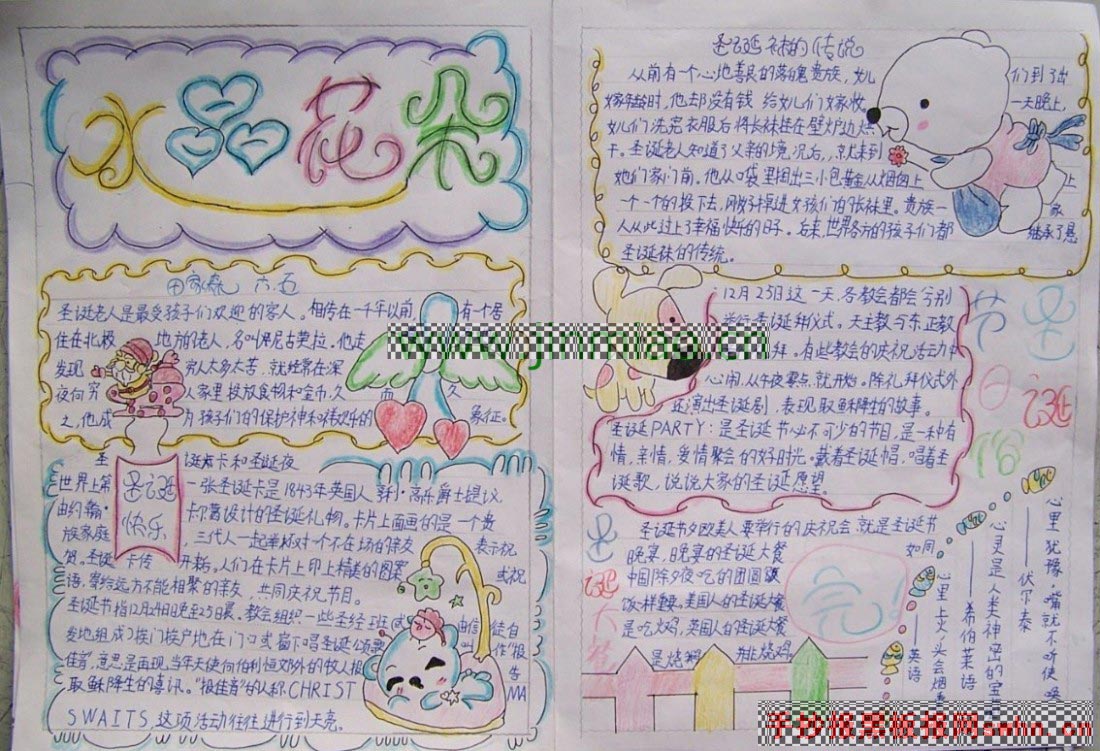 水晶花朵
六五
圣诞老人是最受孩子们欢迎的客人。相传在一千年以前,有一个居
住在北极地方的老人,名叫圣尼古莱拉。他走
发现穷人大多太苦,就经常在深
夜向穷人家里投放食物和金币,久而久
之,他成为孩子们的保护神和欢乐的象征。
圣诞快乐
圣诞卡和圣诞夜
世界上第一张圣诞卡是1843年英国人
由约翰·卡尔葛设计的圣诞礼物。卡片上面画的是一个贵
族家庭三代人一起举杯对一个不在场的亲友表示祝
贺。圣诞卡传开始。人们在卡片上印上精美的图案或祝
语,寄给远方不能相聚的亲友,共同庆祝节日。
圣诞节指12月24日晚至25日晨。教会组织一些圣经班(或由信徒自
发地组成)挨门挨户地在门口或窗下唱圣诞颂歌叫作"报
佳音",意思是再现当年天使向伯利恒郊外的牧人报告
耶稣降生的喜讯。"报佳音"的人称CHRISTMA
SWAITS,这项活动往往进行到天亮。
圣诞袜的传说
从前有一个心地善良的落魄贵族,女儿们到了出
嫁年龄时,他却没有钱给女儿们嫁妆。一天晚上,
女儿们洗完衣服后将长袜挂在壁炉边烘
干。圣诞老人知道了父亲的境况后,就来到
她们家门前。他从口袋里掏出三小包黄金从烟囱上
一个一个的投下去,刚好掉进女孩们的长袜里。贵族一家
人从此过上了幸福快乐的日子。后来,世界各方的孩子们都继承了悬
圣诞袜的传统。
12月25日这一天,各教会都会分别
举行圣诞拜仪式。天主教与东正教
拜。有些教会的庆祝活动中
心闹,从午夜零点,就开始。除礼拜仪式外
还演出圣诞剧,表现耶稣降生的故事。
圣诞PARTY:是圣诞节必不可少的节目,是一种有
情,亲情,爱情聚会的好时光。戴着圣诞帽,唱着圣
诞歌,说说大家的圣诞愿望。
圣诞节
圣诞大餐
圣诞节夕欧美人要举行的庆祝会就是圣诞节
晚宴,晚宴的圣诞大餐如同
中国除夕夜吃的团圆饭
饭一样重要。美国人的圣诞大餐
是吃火鸡,英国人的圣诞大餐
是烤鸡
完!
心里犹豫,嘴就不听使唤
——伏尔泰
心灵是人类神密的宝
——希伯莱语
心里上火,头会烟
——英语
www.jxnmiao.cn
手抄报黑板报网swhn.cn